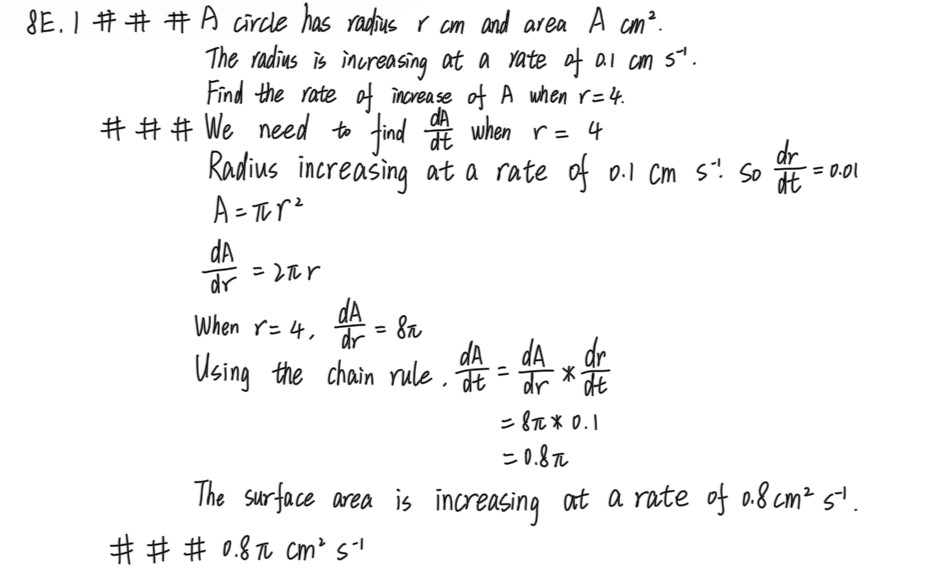 8E.1 # # # A circle has radius r cm and area A cm².
The radius is increasing at a rate of 0.1 cm s⁻¹.
Find the rate of increase of A when r=4.
# # # We need to find dA/dt when r = 4
Radius increasing at a rate of 0.1 cm s⁻¹. So dr/dt = 0.01
A = πr²
dA/dr = 2πr
When r=4, dA/dr = 8π
Using the chain rule, dA/dt = dA/dr * dr/dt
= 8π * 0.1
= 0.8π
The surface area is increasing at a rate of 0.8 cm² s⁻¹.
# # # 0.8π cm² s⁻¹